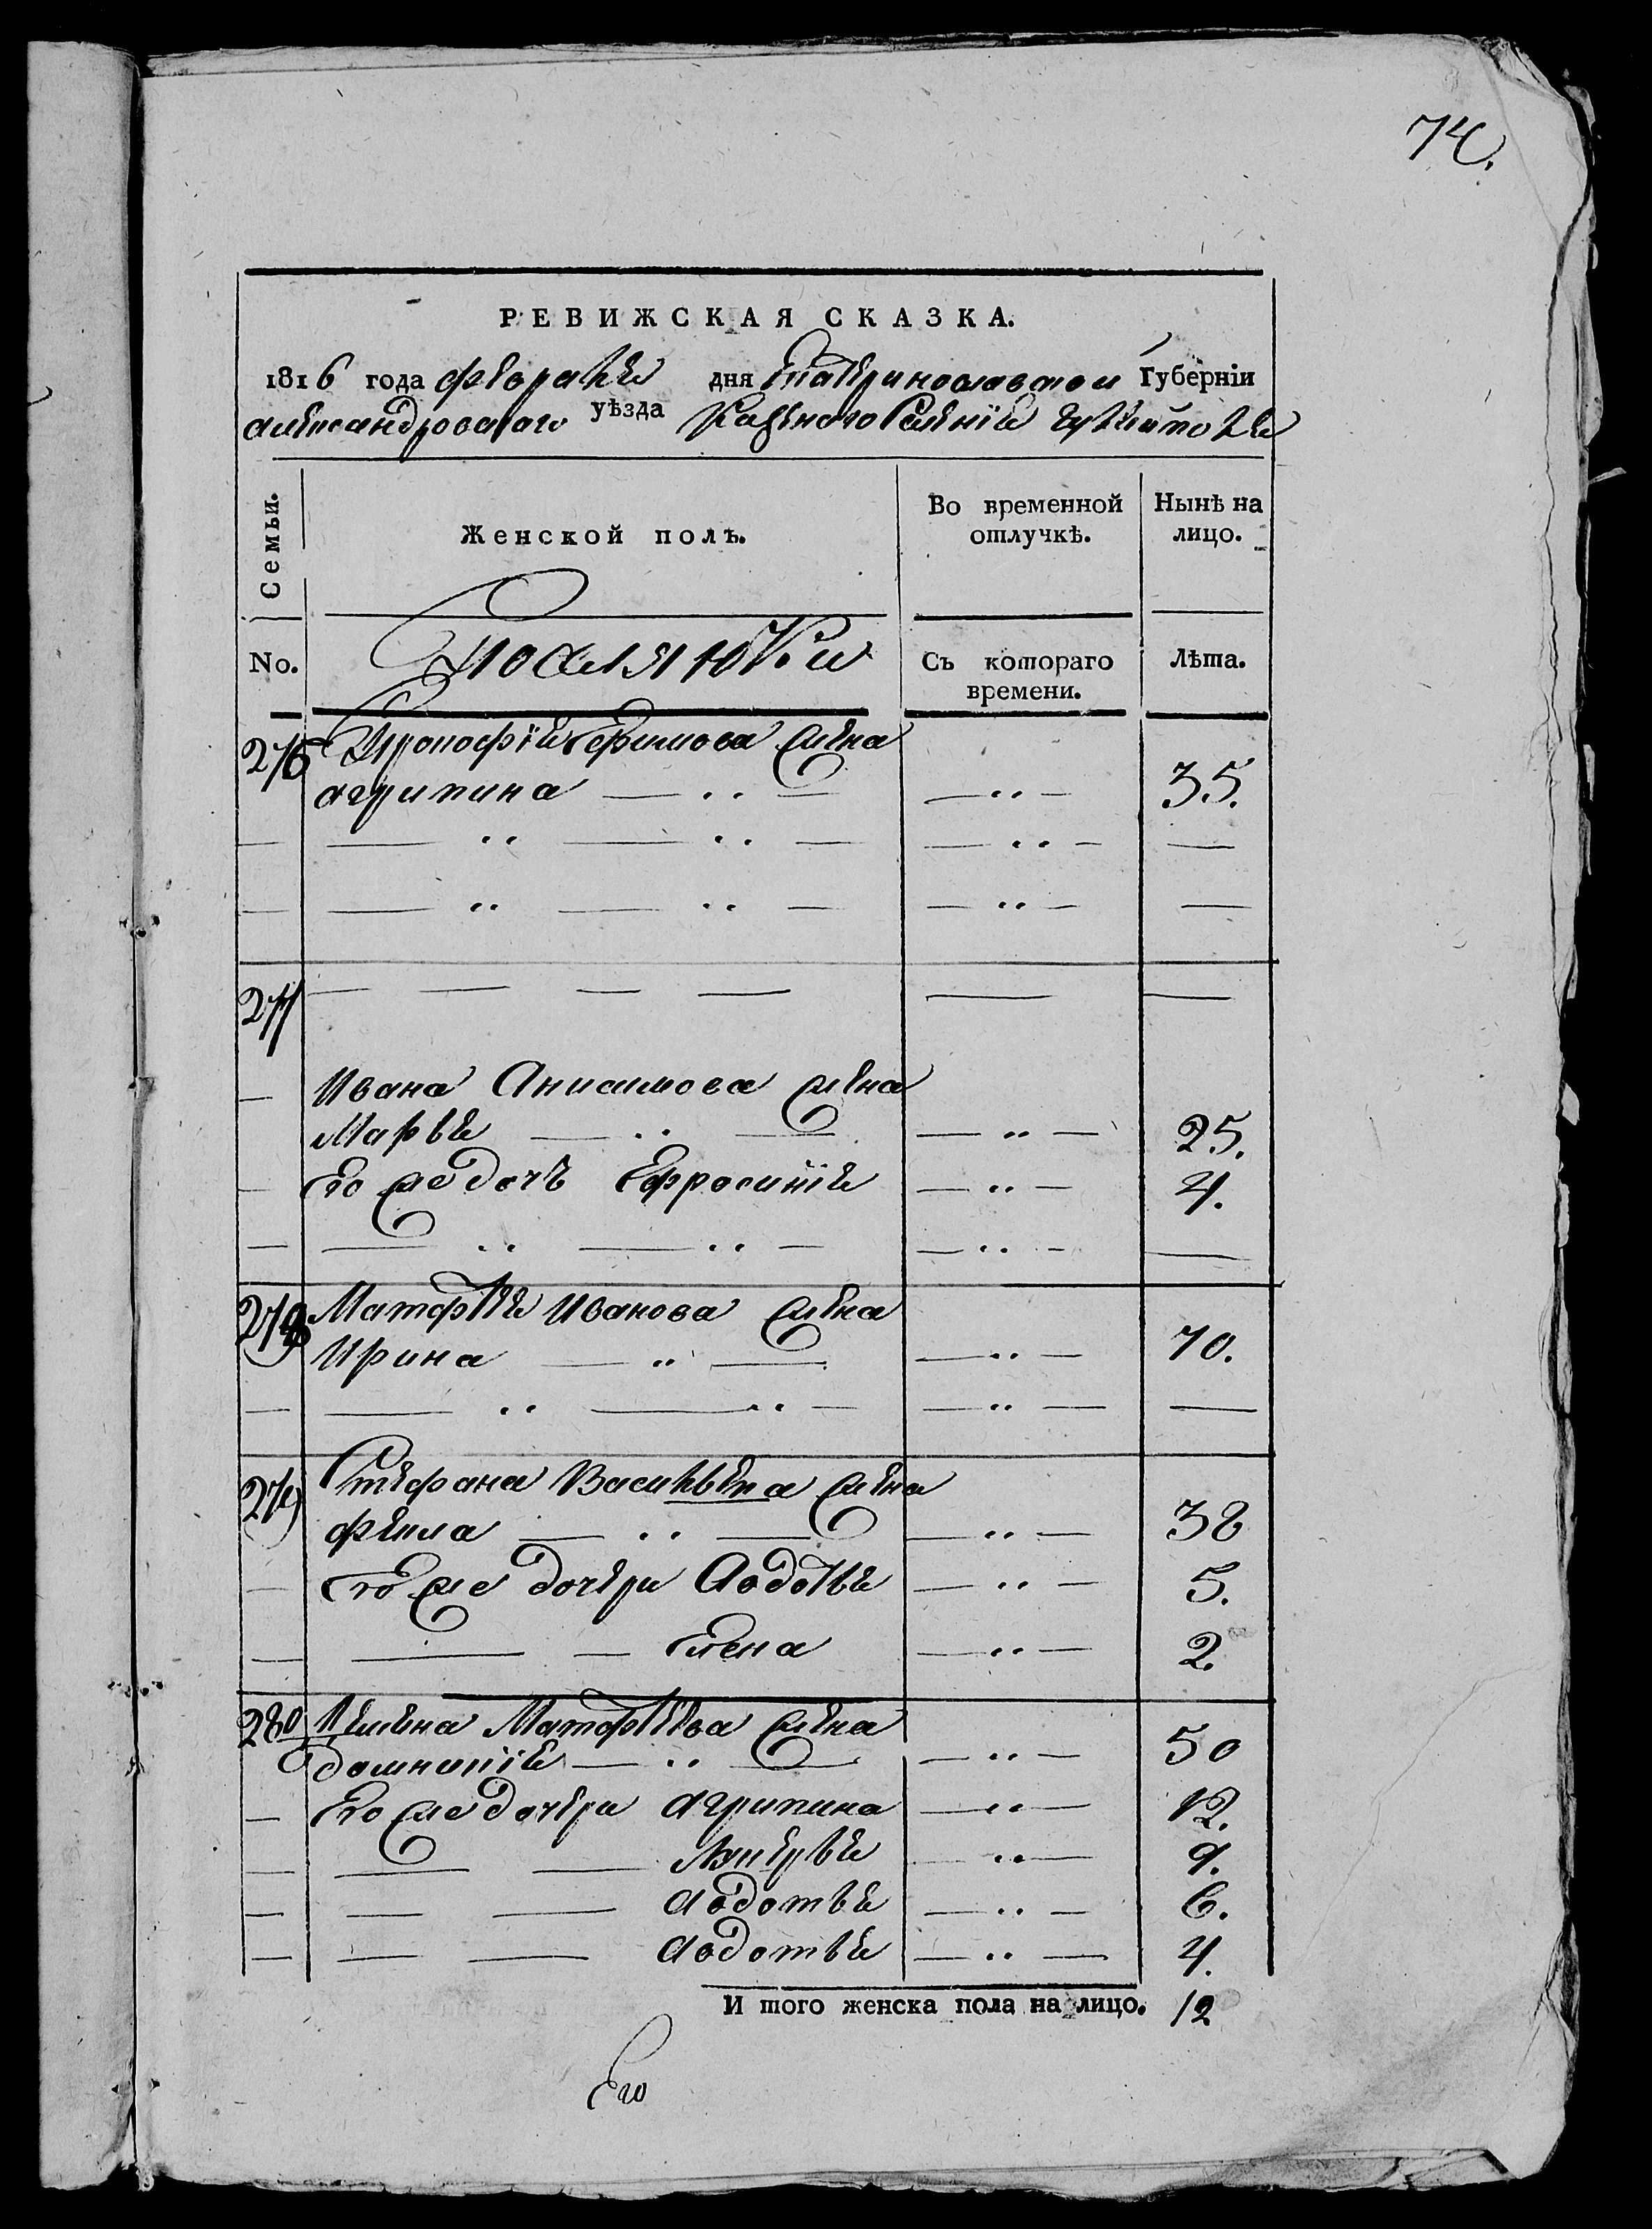 74.
РЕВИЖСКАЯ СКАЗКА.
1816 года февраля дня Екатеринославской Губернiи
александровскаго уѣзда Казенного Селенiя гуляйполя
Семьи. Женской полъ. Во временной отлучкѣ. Нынѣ на лицо.
No. Поселянки Съ котораго времени. Лѣта.
276 Прокофiя Ефимова жена
агрипина — „ — — „ — 35.
— — „ — „ — — „ — —
— — „ — „ — — „ — —
277 — — — — — —
— Ивана Анисимова жена
Марья — „ — — „ — 25.
— Его же дочь Ефросинiя — „ — 4.
— — „ — „ — — „ — —
278 Матфѣя Иванова жена
Ирина — „ — — „ — 70.
— — „ — „ — — „ — —
279 Стефана Васильева жена
фекла — „ — — „ — 38
— Его же дочери Авдотья — „ — 5.
— — — Елена — „ — 2.
280 Матфѣева жена
домникiя — „ — — „ — 50
— Его же дочери агрипина — „ — 12.
— — — Лукерья — „ — 9.
— — — авдотья — „ — 6.
— — — авдотья — „ — 4.
И того женска пола на лицо. 12
Его